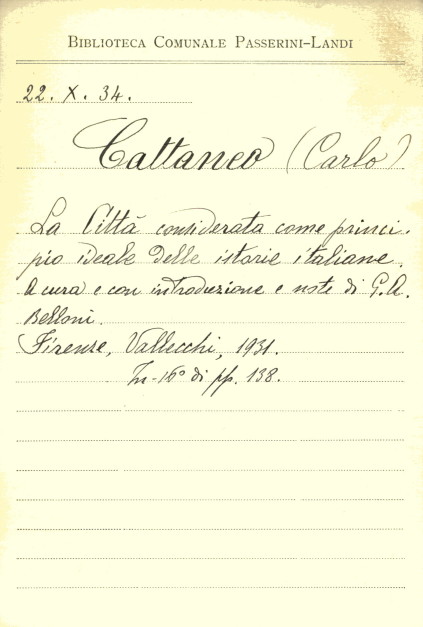 BIBLIOTECA COMUNALE PASSERINI-LANDI
22. X. 34.
Cattaneo (Carlo)
La Città considerata come princi-
pio ideale delle istorie italiane.
A cura e con introduzione e note di G. A.
Belloni.
Firenze, Vallecchi, 1931.
In-16° di pp. 138.